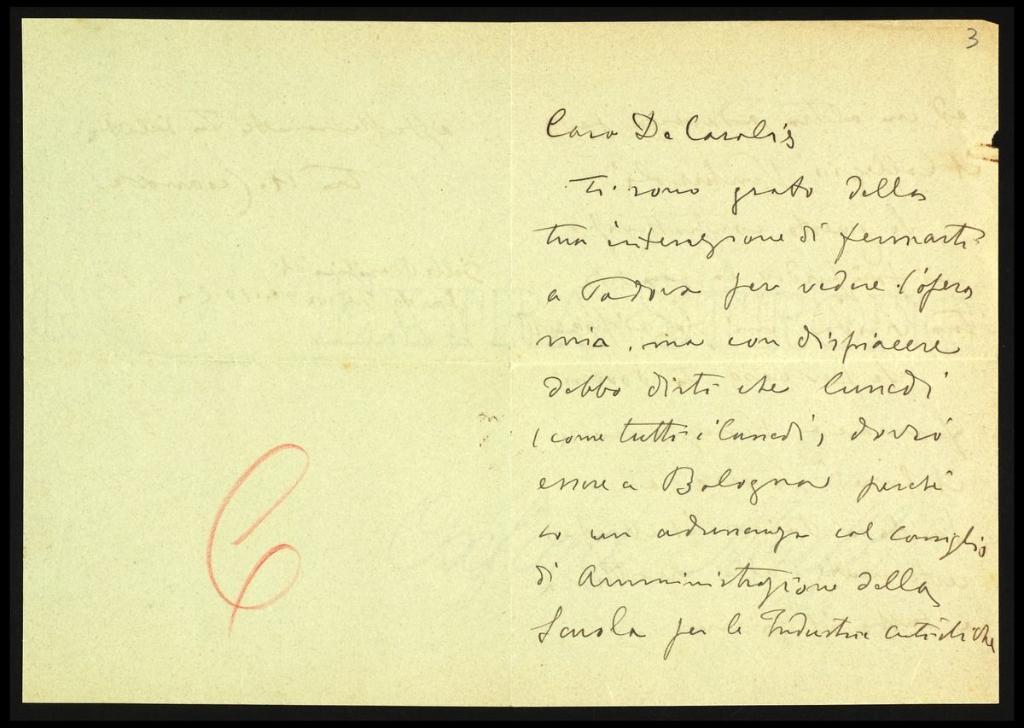 3
Caro De Carolis
Ti sono grato della
tua intenzione di fermarti
a Padova per vedere l'opera
mia, ma con dispiacere
debbo dirti che lunedì
(come tutti i lunedì) dovrò
essere a Bologna perché
ò un adunanza col Consiglio
di Amministrazione della
Scuola per le Industrie artistiche
6